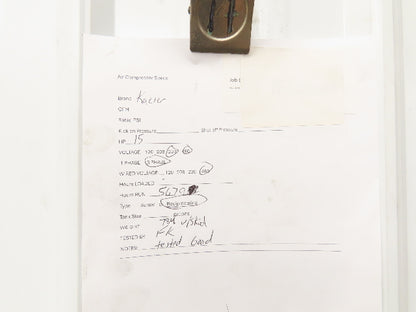 Air Compressor Specs Job
Brand Kaeser
CFM
Rated PSI
Kick on Pressure Shut off Pressure
HP 15
VOLTAGE 120 208 230 460
1 PHASE 3 PHASE
WIRED VOLTAGE 120 208 230 460
Hours LOADED
Hours RUN
Type Screw Reciprocating
Tank Size Gallons
WEIGHT w/skid
TESTED BY FK
NOTES tested Good